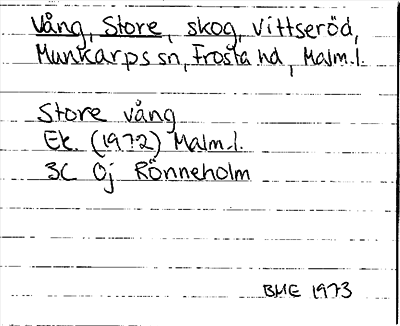 Vång, Store, skog, Vittseröd,
Munkarps sn, Frosta hd, Malm.l.
Store vång
Ek. (1972) Malm.l.
3C Öj Rönneholm
BME 1973